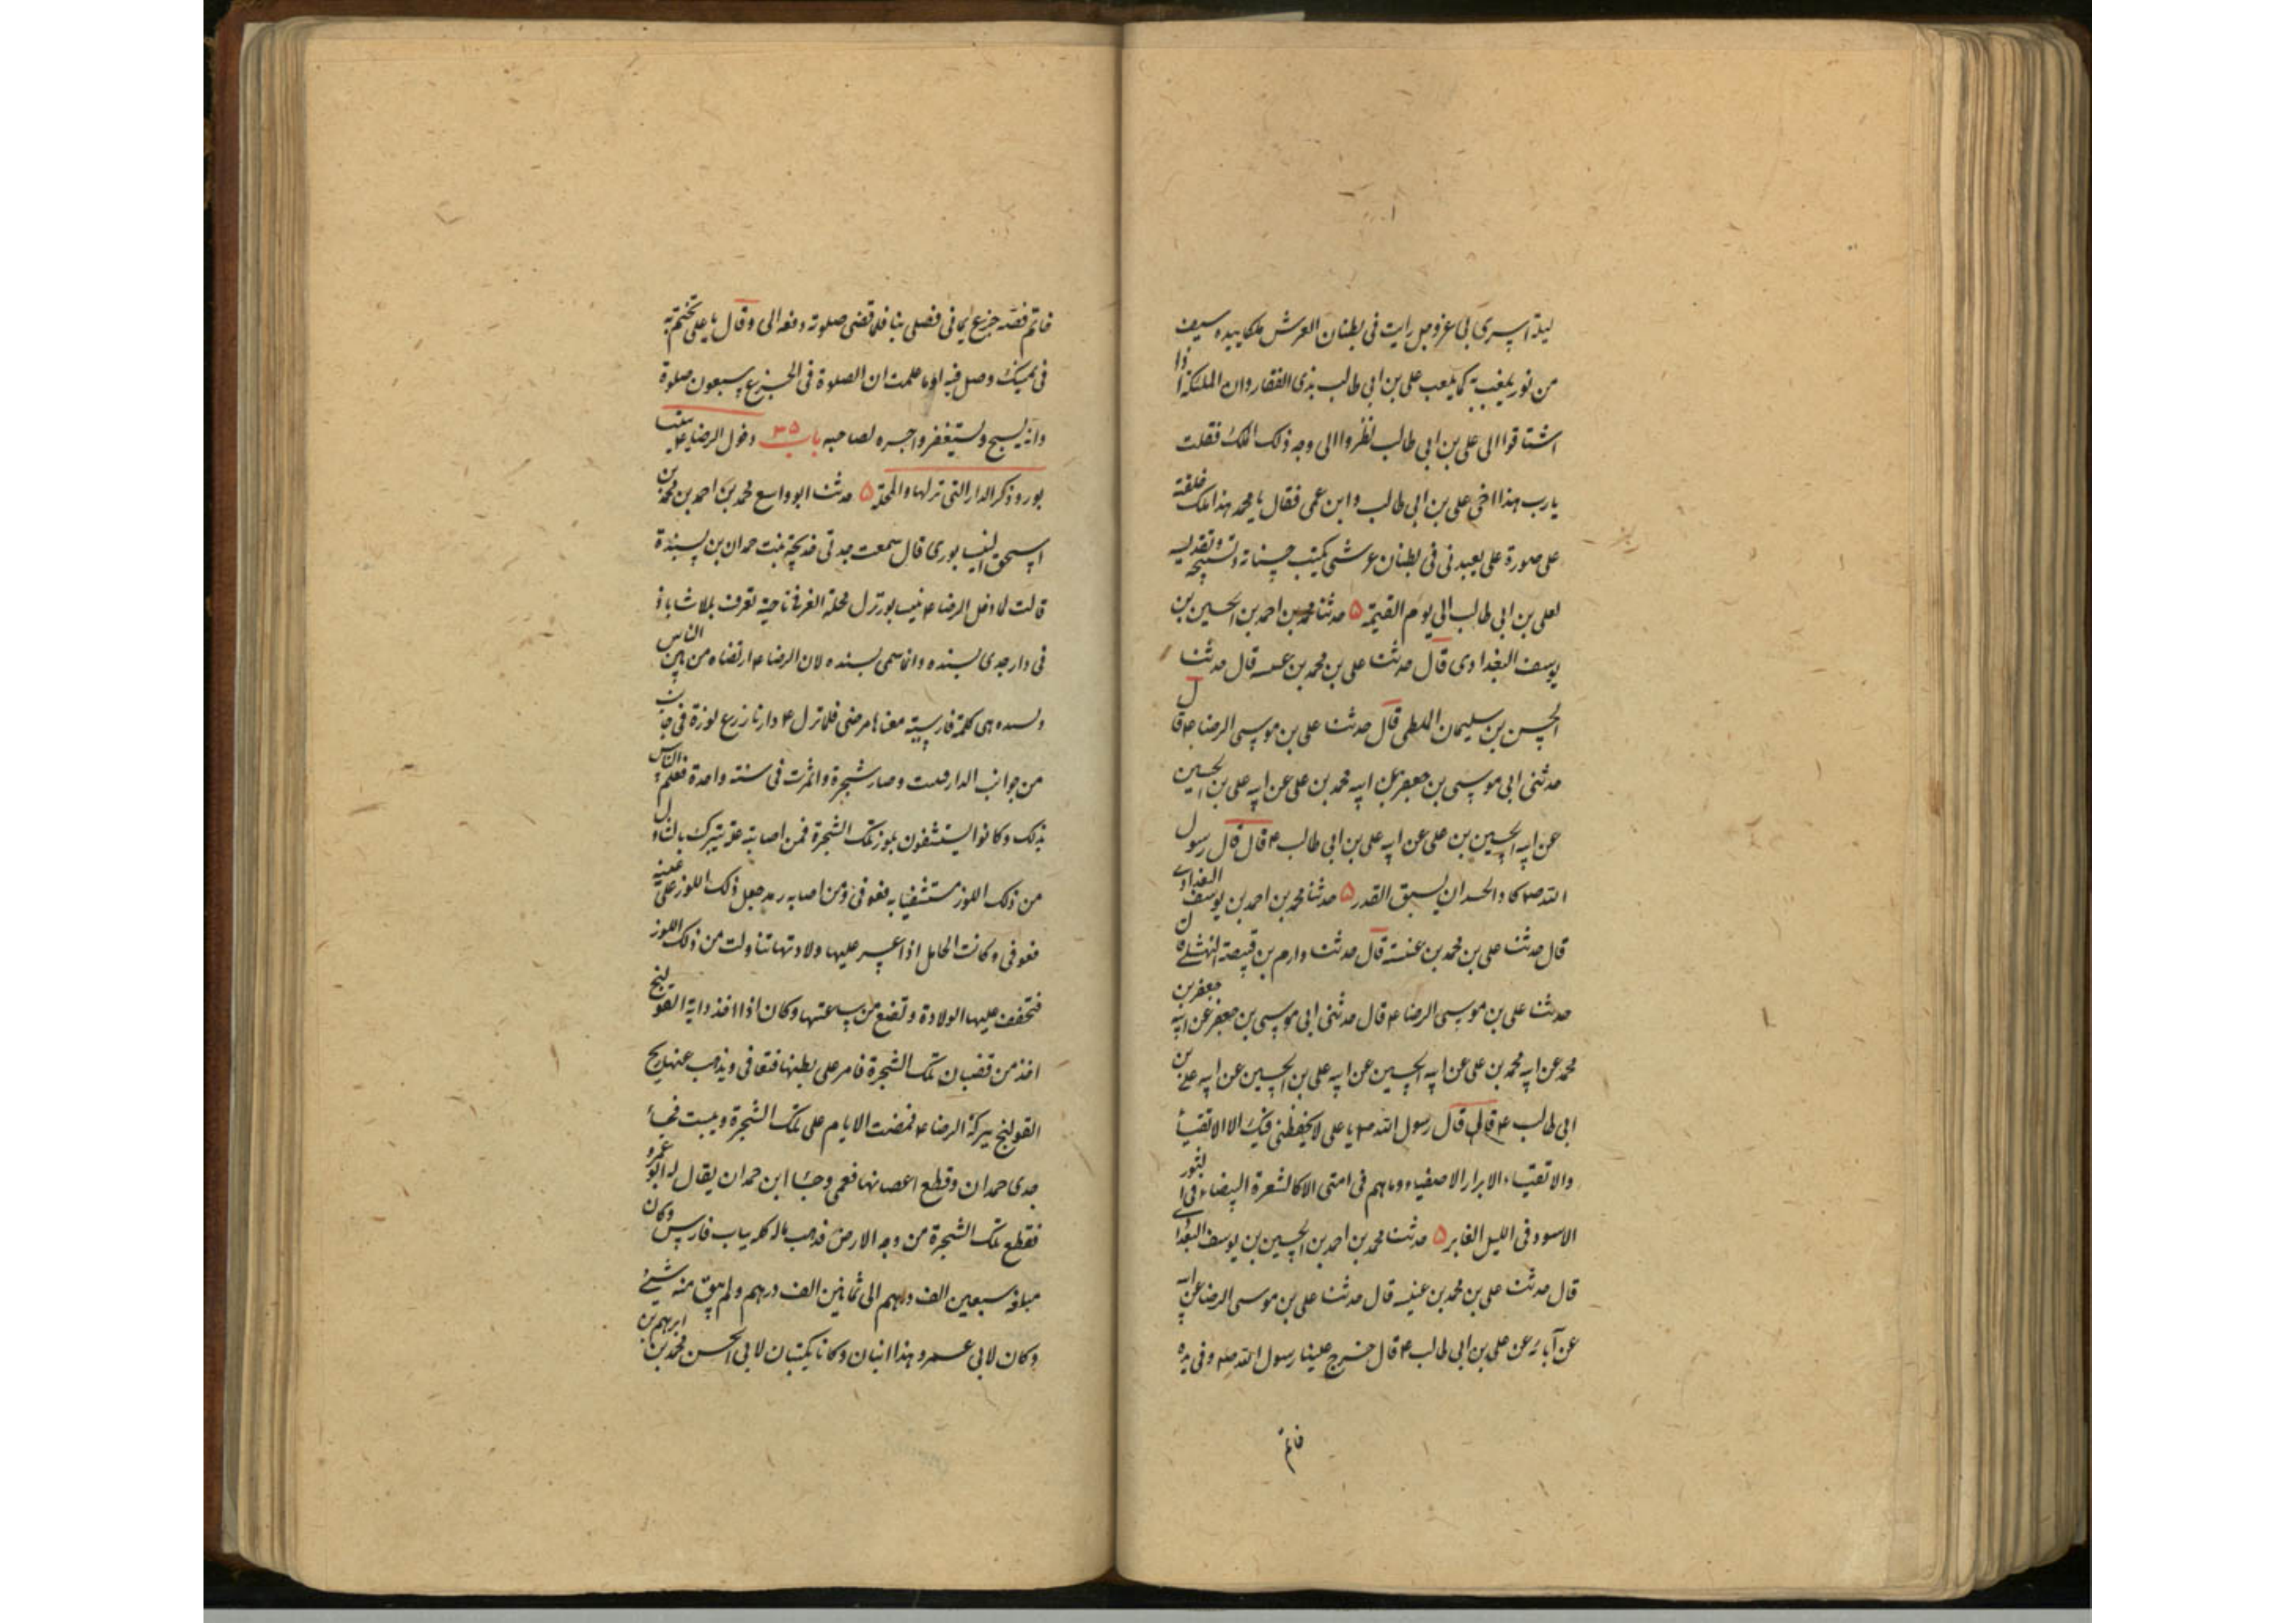 ليلة اسرى بى عز وجل رايت فى بطنان العرش ملكا بيده سيف
من نور يلعب به كما يلعب على بن ابى طالب بذى الفقار وان الملئكة اذا
اشتاقوا الى على بن ابى طالب نظروا الى وجه ذلك الملك فقلت
يارب هذا اخى على بن ابى طالب وابن عمى فقال يا محمد هذا ملك خلقته
على صورة على يعبدنى فى بطنان عرشى يكتب حسناته وتسبيحه وتقديسه
لعلى بن ابى طالب الى يوم القيمة ۵ حدثنا محمد بن احمد بن الحسين بن
يوسف البغدادى قال حدثنا على بن محمد بن عنبسه قال حدثنا
الحسن بن سليمان الملطى قال حدثنا على بن موسى الرضا ع قال
حدثنى ابى موسى بن جعفر عن ابيه محمد بن على عن ابيه على بن الحسين
عن ابيه الحسين بن على عن ابيه على بن ابى طالب ع قال قال رسول
الله ص كاد الحسد ان يسبق القدر ۵ حدثنا محمد بن احمد بن يوسف البغدادى
قال حدثنا على بن محمد بن عنبسة قال حدثنا دارم بن قبيصة النهشلى قال
حدثنا على بن موسى الرضا ع قال حدثنى ابى موسى بن جعفر عن ابيه جعفر بن
محمد عن ابيه محمد بن على عن ابيه الحسين عن ابيه على بن الحسين عن ابيه على بن
ابى طالب ع قال قال رسول الله ص يا على لا يحفظنى فيك الا الاتقياء
والاتقياء الابرار الاصفياء وما هم فى امتى الا كالشعرة البيضاء فى الثور
الاسود فى الليل الغابر ۵ حدثنا محمد بن احمد بن الحسين بن يوسف البغدادى
قال حدثنا على بن محمد بن عنبسه قال حدثنا على بن موسى الرضا عن ابيه
عن آبائه عن على بن ابى طالب ع قال خرج علينا رسول الله ص وفى يده
خاتم
خاتم فضه جزع يمانى فصلى بنا فلما قضى صلوته دفعه الى وقال يا على تختم به
فى يمينك وصل فيه اوما علمت ان الصلوة فى الجزع سبعون صلوة
وانه يسبح ويستغفر واجره لصاحبه باب ۳۵ دخول الرضا ع بنيسا
بور وذكر الدار التى نزلها والمحلة ۵ حدثنا ابو واسع محمد بن احمد بن محمد بن
اسحق النيسابورى قال سمعت جدتى خديجة بنت حمدان بن پسندة
قالت لما دخل الرضا ع نيسابور نزل محلة الغرفى ناحية تعرف بلاشاباذ
فى دار جدى پسنده وانما سمى پسنده لان الرضا ع ارتضاه من بين الناس
وپسنده هى كلمة فارسية معناها مرضى فلما نزل ع دارنا زرع لوزة فى جانب
من جوانب الدار فنبتت وصار شجرة واثمرت فى سنة واحدة فعلم الناس
بذلك وكانوا يستشفون بلوز تلك الشجرة فمن اصابته علة تبرك بالتناول
من ذلك اللوز مستشفيا به فعوفى ومن اصابه رمد جعل ذلك اللوز على عينيه
فعوفى وكانت الحامل اذا عسر عليها ولادتها تناولت من ذلك اللوز
فتخفف عليها الولادة وتضع من ساعتها وكان اذا اخذ دابة القولنج
اخذ من قضبان تلك الشجرة فامر على بطنها فتعافى ويذهب عنها ريح
القولنج ببركة الرضا ع فمضت الايام على تلك الشجرة ويبست فجاء
جدى حمدان وقطع اغصانها فعمى وجاء ابن حمدان يقال له ابو عمرو
فقطع تلك الشجرة من وجه الارض فذهب ماله كله بباب فارس وكان
مبلغه سبعين الف درهم الى ثمانين الف درهم ولم يبق منه شئ
وكان لابى عمرو هذا ابنان وكانا يكتبان لابى الحسن محمد بن ابرهيم بن